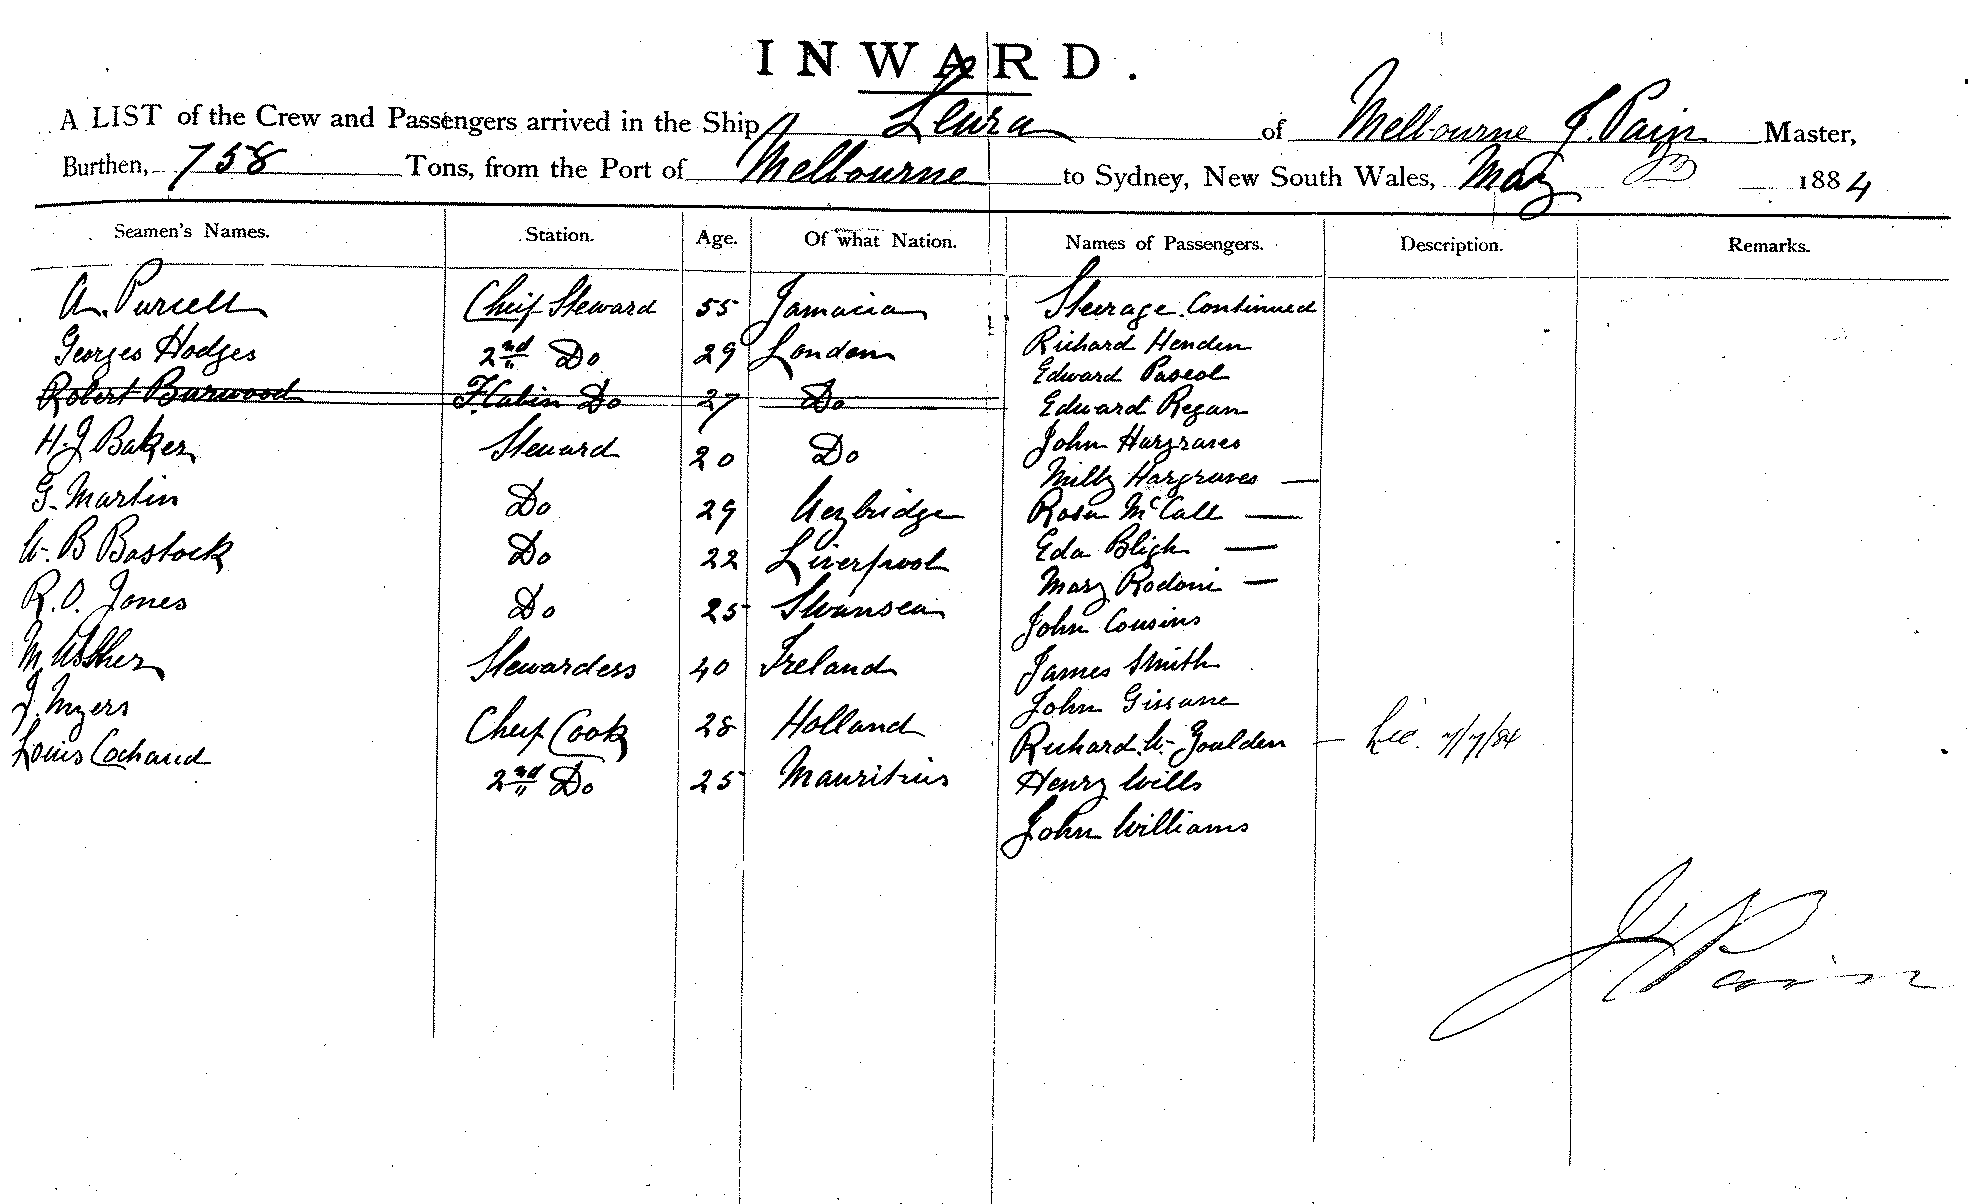 INWARD.
A LIST of the Crew and Passengers arrived in the Ship Leura of Melbourne J. Pain Master,
Burthen, 758 Tons, from the Port of Melbourne to Sydney, New South Wales, May 1884
Seamen's Names. Station. Age. Of what Nation. Names of Passengers. Description. Remarks.
A. Purcell Cheif Steward 55 Jamacia Steerage Continued
Georges Hodges 2nd Do 29 London Richard Henden
Edward Pascol
Robert Burwood F. Cabin Do 27 Do Edward Regan
H. J Baker Steward 20 Do John Hargraves
Milly Hargraves —
G. Martin Do 29 Weybridge Rosa McCall —
W. B Bostock Do 22 Liverpool Eda Bligh —
Mary Rodoni —
R. O. Jones Do 25 Swansea John Cousins
M. Stewardess 40 Ireland James Smith
J. Myers Cheif Cook 28 Holland John Gissane
Louis Cochaud 2nd Do 25 Mauritius Richard W. Goulden — Lic. 7/7/84
Henry Wills
John Williams
J Pain